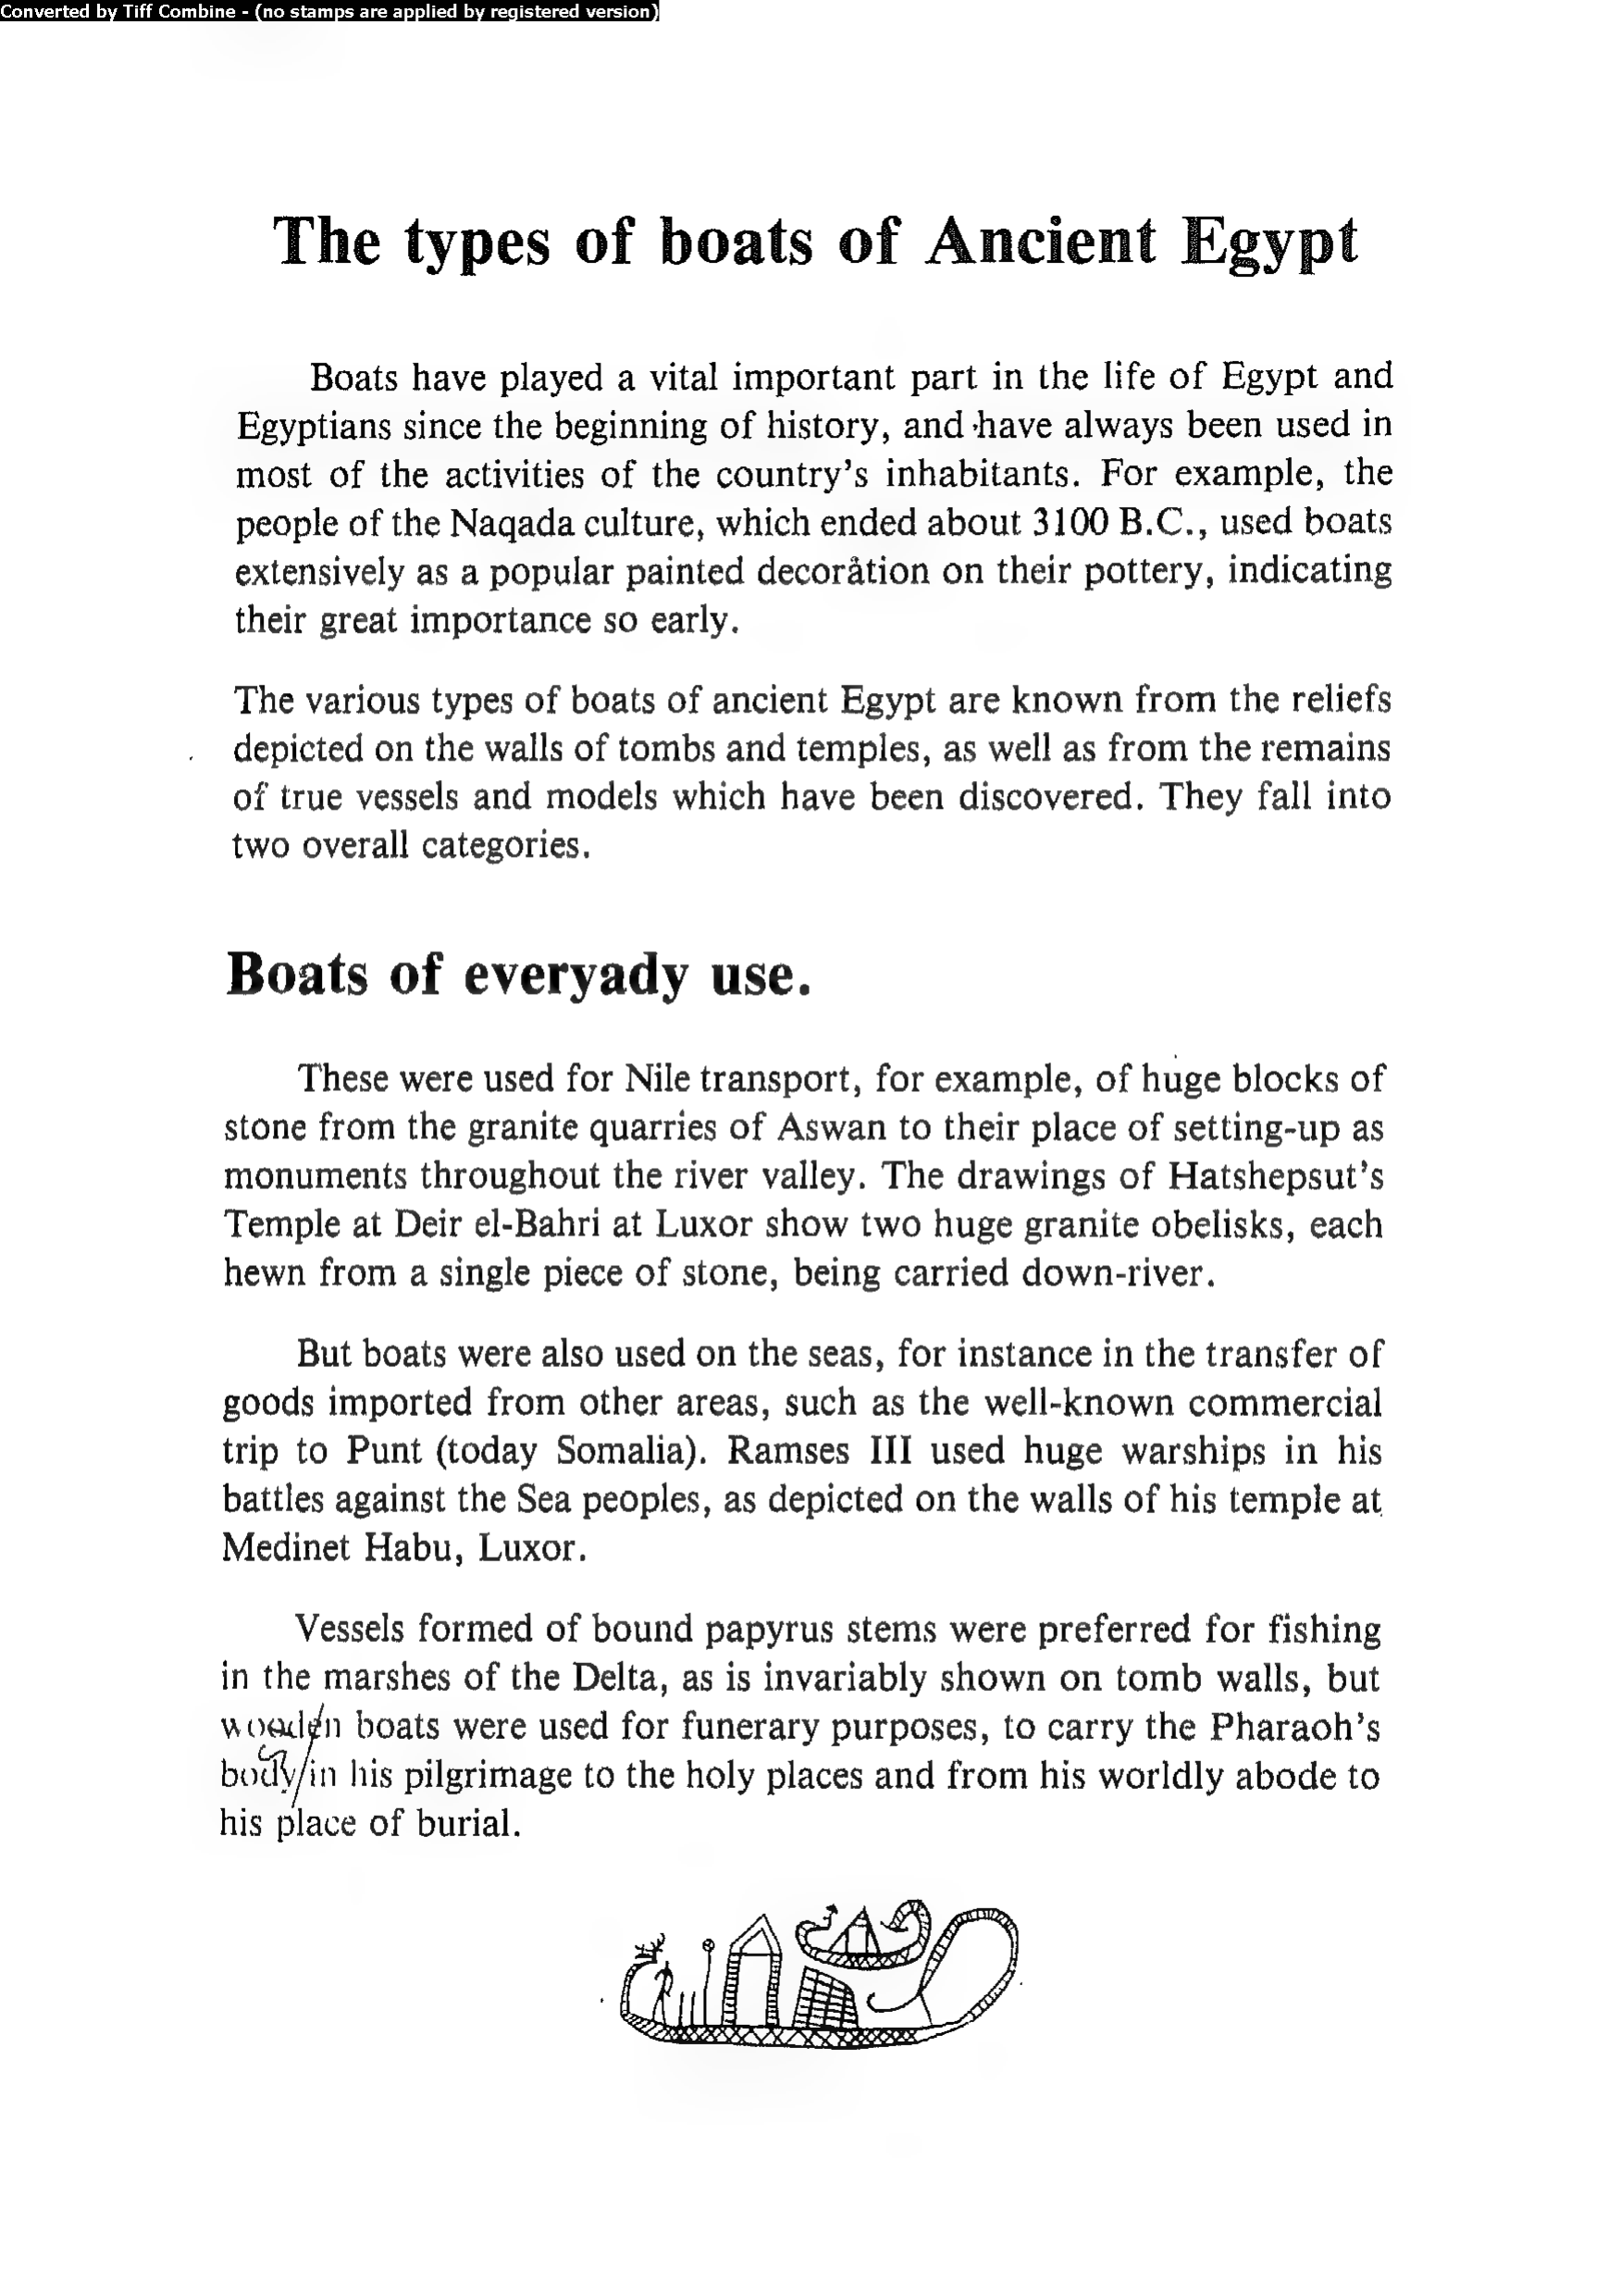 Converted by Tiff Combine - (no stamps are applied by registered version)
The types of boats of Ancient Egypt
Boats have played a vital important part in the life of Egypt and
Egyptians since the beginning of history, and have always been used in
most of the activities of the country's inhabitants. For example, the
people of the Naqada culture, which ended about 3100 B.C., used boats
extensively as a popular painted decoration on their pottery, indicating
their great importance so early.
The various types of boats of ancient Egypt are known from the reliefs
depicted on the walls of tombs and temples, as well as from the remains
of true vessels and models which have been discovered. They fall into
two overall categories.
Boats of everyady use.
These were used for Nile transport, for example, of huge blocks of
stone from the granite quarries of Aswan to their place of setting-up as
monuments throughout the river valley. The drawings of Hatshepsut's
Temple at Deir el-Bahri at Luxor show two huge granite obelisks, each
hewn from a single piece of stone, being carried down-river.
But boats were also used on the seas, for instance in the transfer of
goods imported from other areas, such as the well-known commercial
trip to Punt (today Somalia). Ramses III used huge warships in his
battles against the Sea peoples, as depicted on the walls of his temple at
Medinet Habu, Luxor.
Vessels formed of bound papyrus stems were preferred for fishing
in the marshes of the Delta, as is invariably shown on tomb walls, but
wooden boats were used for funerary purposes, to carry the Pharaoh's
body in his pilgrimage to the holy places and from his worldly abode to
his place of burial.